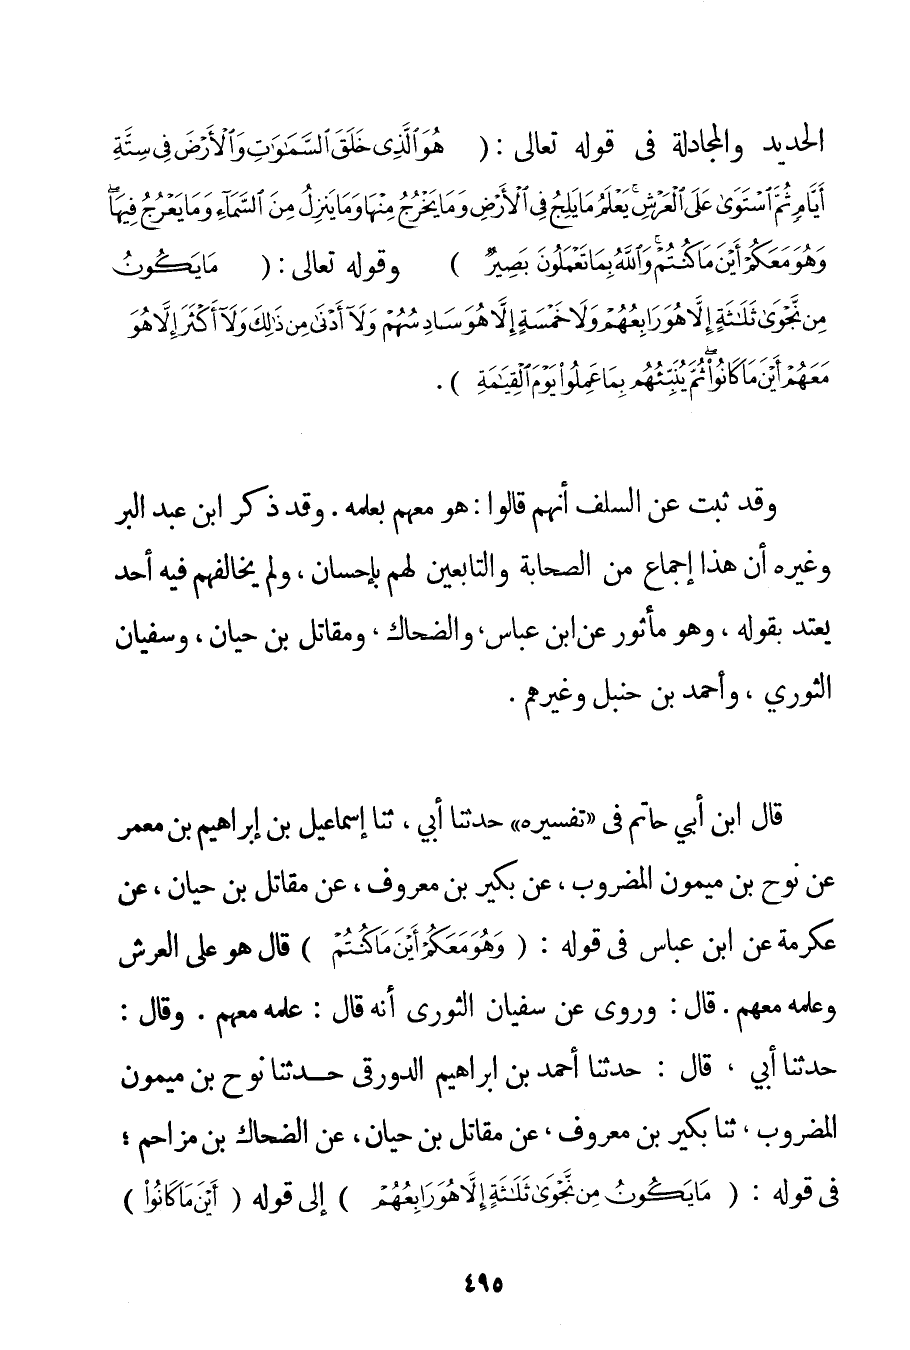 الحديد والمجادلة فى قوله تعالى : ( هُوَ ٱلَّذِى خَلَقَ ٱلسَّمَٰوَٰتِ وَٱلْأَرْضَ فِى سِتَّةِ
أَيَّامٍ ثُمَّ ٱسْتَوَىٰ عَلَى ٱلْعَرْشِ ۚ يَعْلَمُ مَا يَلِجُ فِى ٱلْأَرْضِ وَمَا يَخْرُجُ مِنْهَا وَمَا يَنزِلُ مِنَ ٱلسَّمَآءِ وَمَا يَعْرُجُ فِيهَا ۖ
وَهُوَ مَعَكُمْ أَيْنَ مَا كُنتُمْ ۚ وَٱللَّهُ بِمَا تَعْمَلُونَ بَصِيرٌ ) وقوله تعالى : ( مَا يَكُونُ
مِن نَّجْوَىٰ ثَلَٰثَةٍ إِلَّا هُوَ رَابِعُهُمْ وَلَا خَمْسَةٍ إِلَّا هُوَ سَادِسُهُمْ وَلَآ أَدْنَىٰ مِن ذَٰلِكَ وَلَآ أَكْثَرَ إِلَّا هُوَ
مَعَهُمْ أَيْنَ مَا كَانُوا۟ ۖ ثُمَّ يُنَبِّئُهُم بِمَا عَمِلُوا۟ يَوْمَ ٱلْقِيَٰمَةِ ) .
وقد ثبت عن السلف أنهم قالوا : هو معهم بعلمه . وقد ذكر ابن عبد البر
وغيره أن هذا إجماع من الصحابة والتابعين لهم بإحسان ، ولم يخالفهم فيه أحد
يعتد بقوله ، وهو مأثور عن ابن عباس ، والضحاك ، ومقاتل بن حيان ، وسفيان
الثوري ، وأحمد بن حنبل وغيرهم .
قال ابن أبي حاتم فى «تفسيره» حدثنا أبي ، ثنا إسماعيل بن إبراهيم بن معمر
عن نوح بن ميمون المضروب ، عن بكير بن معروف ، عن مقاتل بن حيان ، عن
عكرمة عن ابن عباس فى قوله : ( وَهُوَ مَعَكُمْ أَيْنَ مَا كُنتُمْ ) قال هو على العرش
وعلمه معهم . قال : وروى عن سفيان الثورى أنه قال : علمه معهم . وقال :
حدثنا أبي ، قال : حدثنا أحمد بن ابراهيم الدورقى حـدثنا نوح بن ميمون
المضروب ، ثنا بكير بن معروف ، عن مقاتل بن حيان ، عن الضحاك بن مزاحم ؛
فى قوله : ( مَا يَكُونُ مِن نَّجْوَىٰ ثَلَٰثَةٍ إِلَّا هُوَ رَابِعُهُمْ ) إلى قوله ( أَيْنَ مَا كَانُوا۟ )
٤٩٥